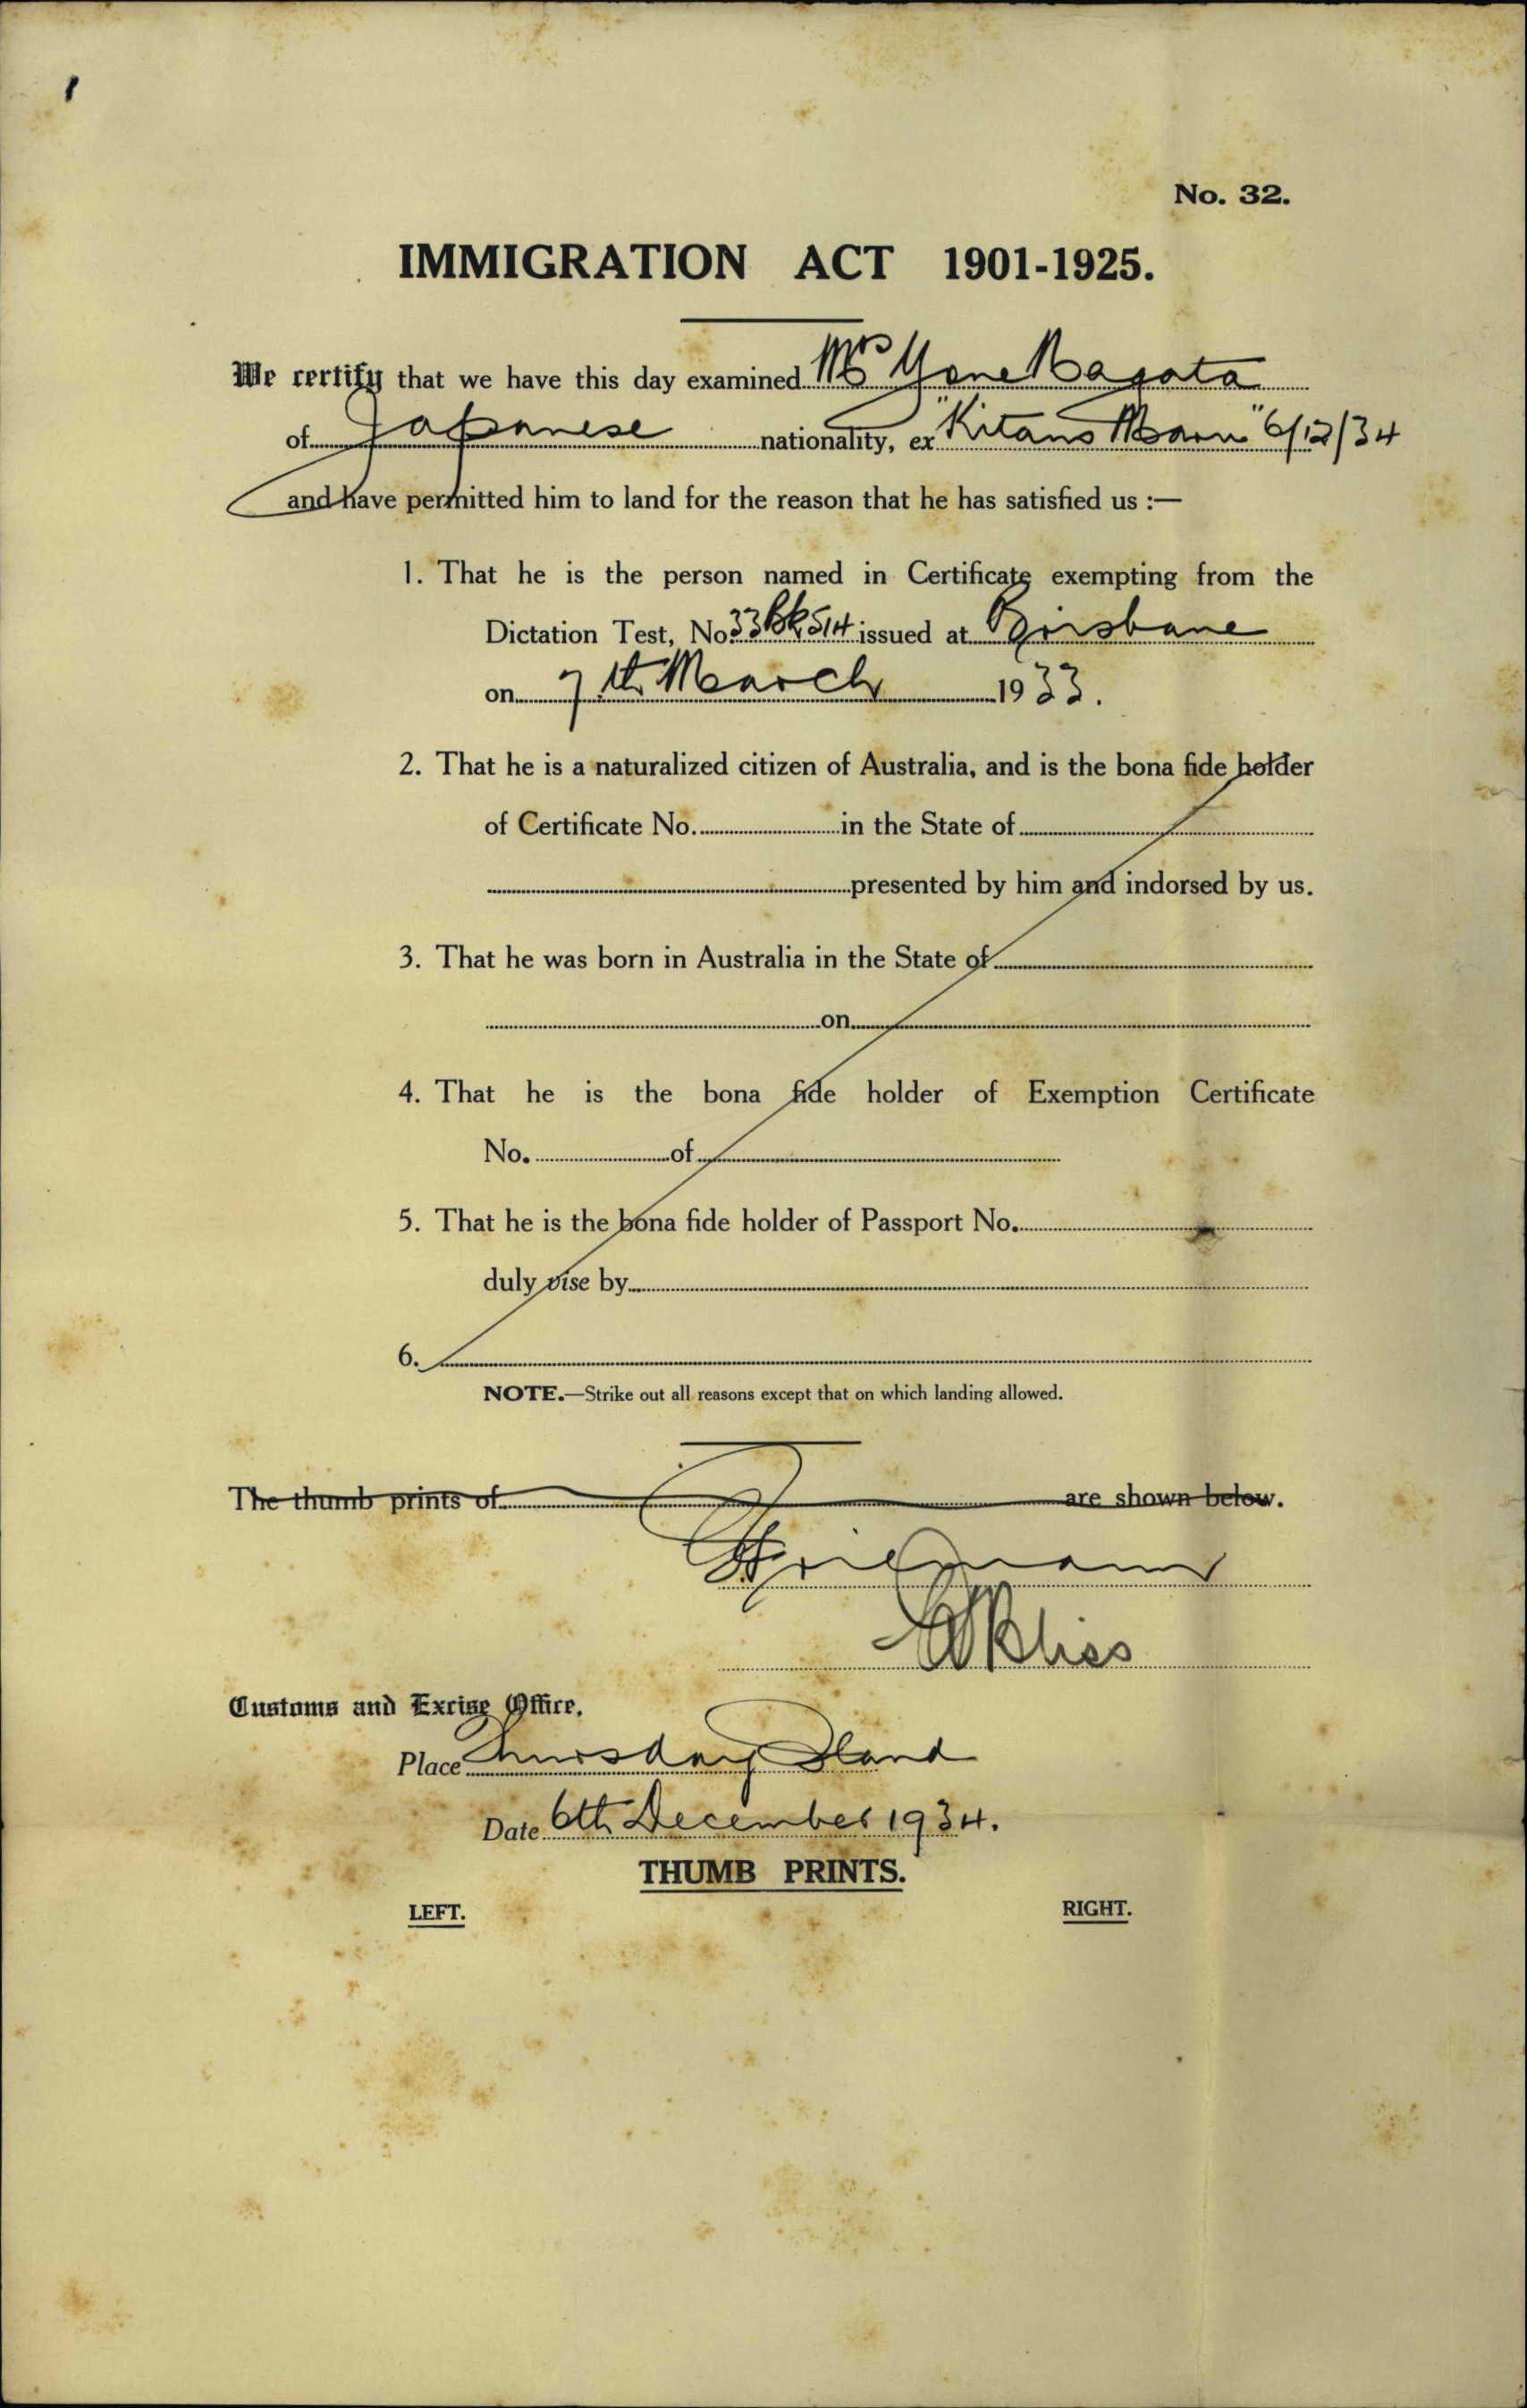 No. 32.
IMMIGRATION ACT 1901-1925.
We certify that we have this day examined Mrs Yone Nagata
of Japanese nationality, ex "Kitano Maru" 6/12/34
and have permitted him to land for the reason that he has satisfied us :—
1. That he is the person named in Certificate exempting from the
Dictation Test, No 33 Bk 514 issued at Brisbane
on 7th March 1933.
2. That he is a naturalized citizen of Australia, and is the bona fide holder
of Certificate No. in the State of
presented by him and indorsed by us.
3. That he was born in Australia in the State of
on
4. That he is the bona fide holder of Exemption Certificate
No. of
5. That he is the bona fide holder of Passport No.
duly vise by
6.
NOTE.—Strike out all reasons except that on which landing allowed.
The thumb prints of are shown below.
Bliss
Customs and Excise Office.
Place Thursday Island
Date 6th December 1934.
THUMB PRINTS.
LEFT. RIGHT.